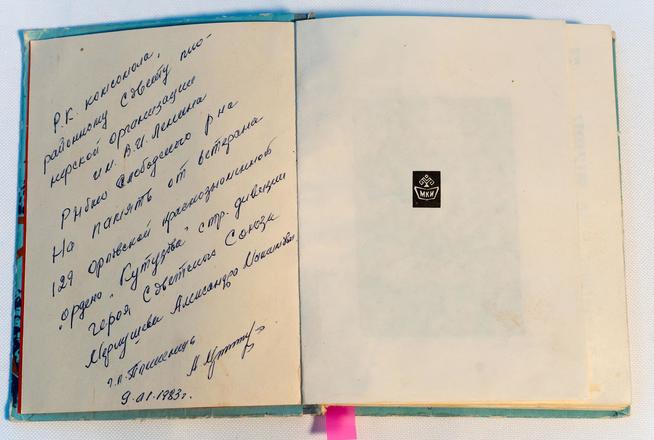 Р.К. комсомола,
районному Совету пио-
нерской организации
им. В.И. Ленина
Рыбно Слободского р-на
На память от ветерана
129 Орловской краснознаменной
"ордена "Кутузова" стр. дивизии
героя Советского Союза
Александра
9.01.1983г.
МКИ